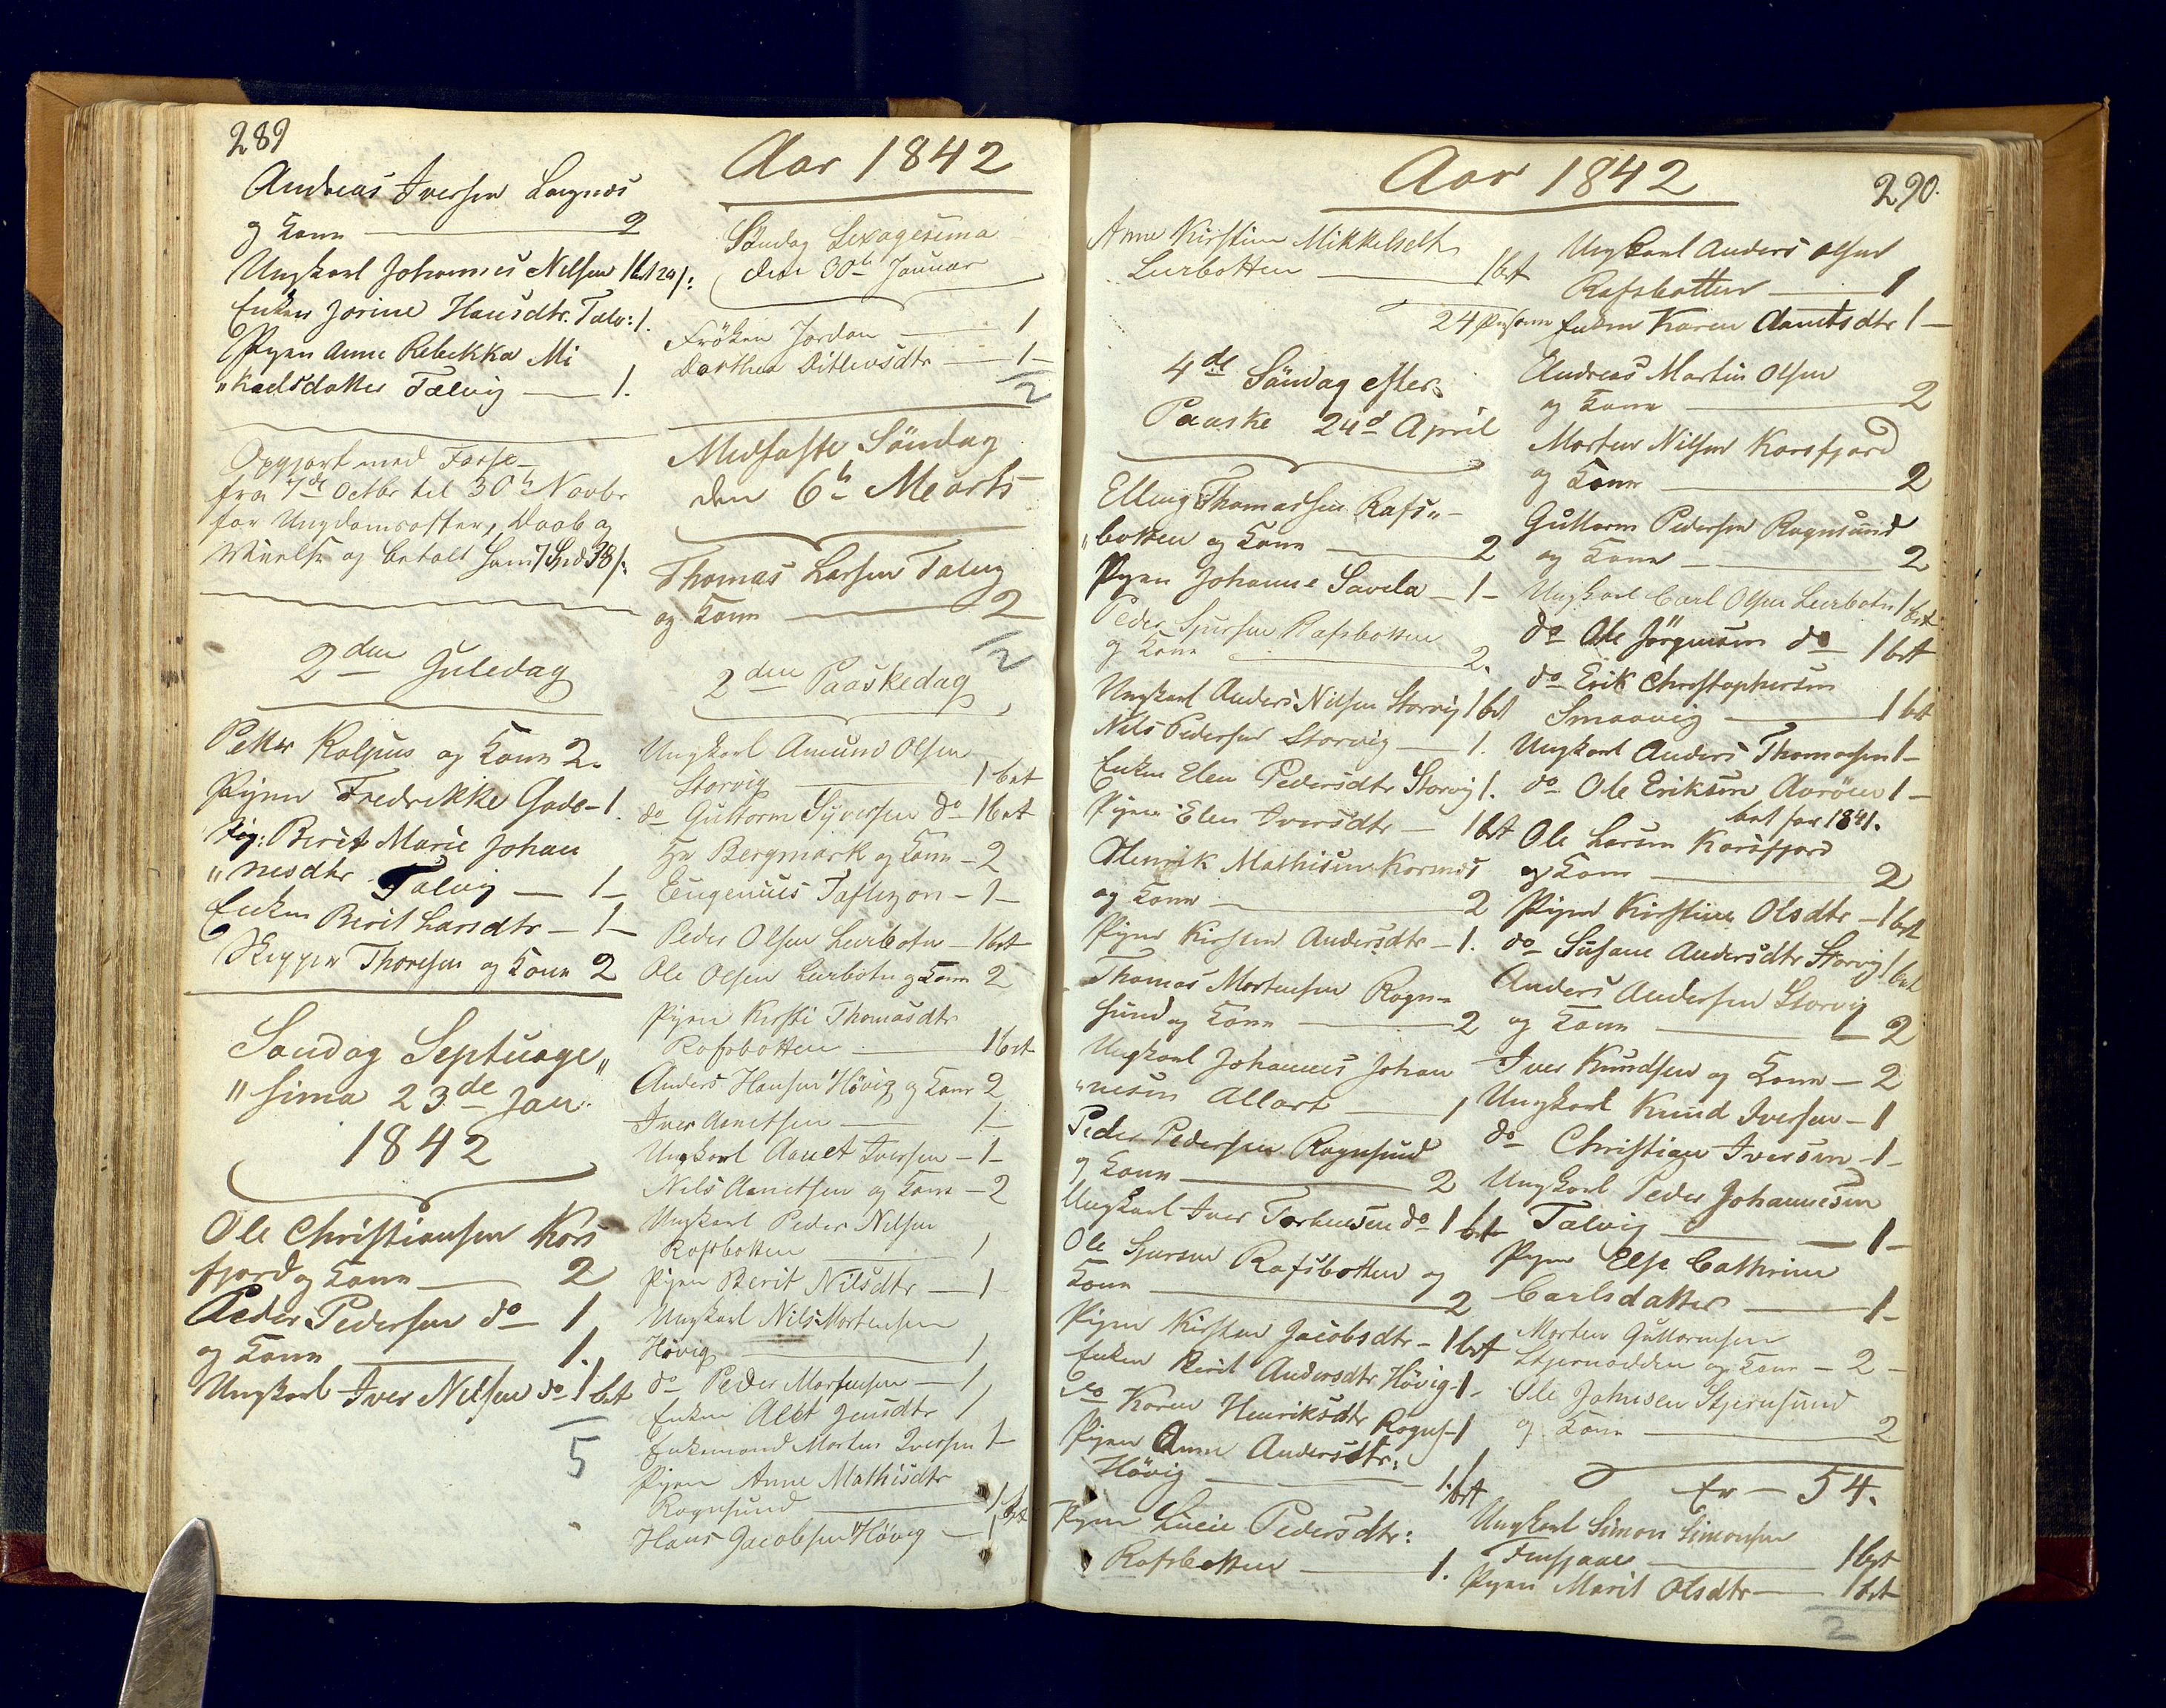 289
Andreas Iversen Langnæs
og Kone 2
Ungkarl Johannes Nilsen 1 bet 24 s:
Enken Jorine Hansdtr. Talv: 1.
Pigen Anne Rebekka Mi
"kaelsdatter Talvig — 1.
Opgjort med
fra 7de Octbr til 30te Novbr
for Ungdomsoffer, Daab og
Vielse og betalt ham 7 Spd 38 s:
2den Juledag
Petter Kolpus og Kone 2.
Pigen Fredrikke Gade — 1.
Pig: Berit Marie Johan
"nesdtr Talvig — 1 —
Enken Berit Larsdtr — 1 —
Skipper Thoresen og Kone 2
Søndag Septuage"
"sima 23de Jan:
1842
Ole Christiansen Kors
fjord og Kone — 2
Peder Pedersen do — 1
og Kone — 1.
Ungkarl Iver Nilsen do 1 bet
5
Aar 1842
Søndag Sexagesima
den 30te Januar
Frøken Jordan — 1
Dorthea Ditlevsdtr — 1 —
2
Midfaste Søndag
den 6te Marts
Thomas Larsen Talvig
og Kone — 2
2
2den Paaskedag
Ungkarl Amund Olsen
Storvig — 1 bet
do Guttorm Syversen do — 1 bet
Hr Bergmark og Kone — 2
Eugenius Taftezon — 1 —
Peder Olsen Lerbotn — 1 bet
Ole Olsen Lerbotn og Kone 2
Pigen Kirsti Thomasdtr
Rafsbotten — 1 bet
Anders Hansen Høvig og Kone 2
Iver Anetsen — 1 —
Ungkarl Anet Iversen — 1 —
Nils Anetsen og Kone — 2
Ungkarl Peder Nilsen
Rafsbotten — 1
Pigen Berit Nilsdtr — 1
Ungkarl Nils Mortensen
Høvig — 1
do Peder Mortensen — 1
Enken Alet Jensdtr 1
Enkemand Morten Iversen 1 —
Pigen Anne Mathisdtr
Rognsund — 1 bet
Hans Jacobsen Høvig — 1
Aar 1842
290.
Anne Kirstine Mikkelsdtr
Lerbotten — 1 bet
24 Personer
4de Søndag efter
Paaske 24d April
Elling Thomassen Rafs"
"botten og Kone — 2
Pigen Johanne Savela — 1 —
Peder Sjursen Rafsbotten
og Kone — 2.
Ungkarl Anders Nilsen Storvig 1 bet
Nils Pedersen Storvig — 1.
Enken Elen Pedersdtr Storvig 1.
Pigen Elen Iversdtr — 1 bet
Henrik Mathisen Kornes
og Kone — 2
Pigen Kirsten Andersdtr — 1.
Thomas Mortensen Rogn"
sund og Kone — 2
Ungkarl Johannes Johan
"nesen Allart — 1
Peder Pedersen Rognsund
og Kone — 2
Ungkarl Iver Torbensen do 1 bet
Ole Sjursen Rafsbotten og
Kone — 2
Pigen Kirsten Jacobsdtr — 1 bet
Enken Berit Andersdtr Høvig 1 —
do Karen Henriksdtr Rogns — 1
Pigen Anne Andersdtr:
Høvig — 1. bet
Pigen Lucie Pedersdtr:
Rafsbotten — 1.
Ungkarl Anders Olsen
Rafsbotten — 1
Enken Karen Anetsdtr 1 —
Andreas Martin Olsen
og Kone — 2
Morten Nilsen Korsfjord
og Kone — 2
Guttorm Pedersen Rognsund
og Kone — 2
Ungkarl Carl Olsen Lerbotn 1 bet
do Ole Jörgensen do 1 bet
do Erik Christophersen
Smaavig — 1 bet
Ungkarl Anders Thomasen 1 —
do Ole Eriksen Aarøen 1 —
bet for 1841.
Ole Larsen Korsfjord
og Kone — 2
Pigen Kirstine Olsdtr — 1 bet
do Susane Andersdtr Storvig 1 bet
Anders Andersen Storvig
og Kone — 2
Iver Knudsen og Kone — 2
Ungkarl Knud Iversen — 1
do Christian Iversen — 1 —
Ungkarl Peder Johannesen
Talvig — 1 —
Pigen Else Cathrine
Carlsdatter — 1 —
Morten Guttormsen
Stjernodden og Kone — 2 —
Ole Johnsen Stjernsund
og Kone — 2
Er — 54.
Ungkarl Simon Simonsen
1 bet
Pigen Marit Olsdtr — 1 bet
2